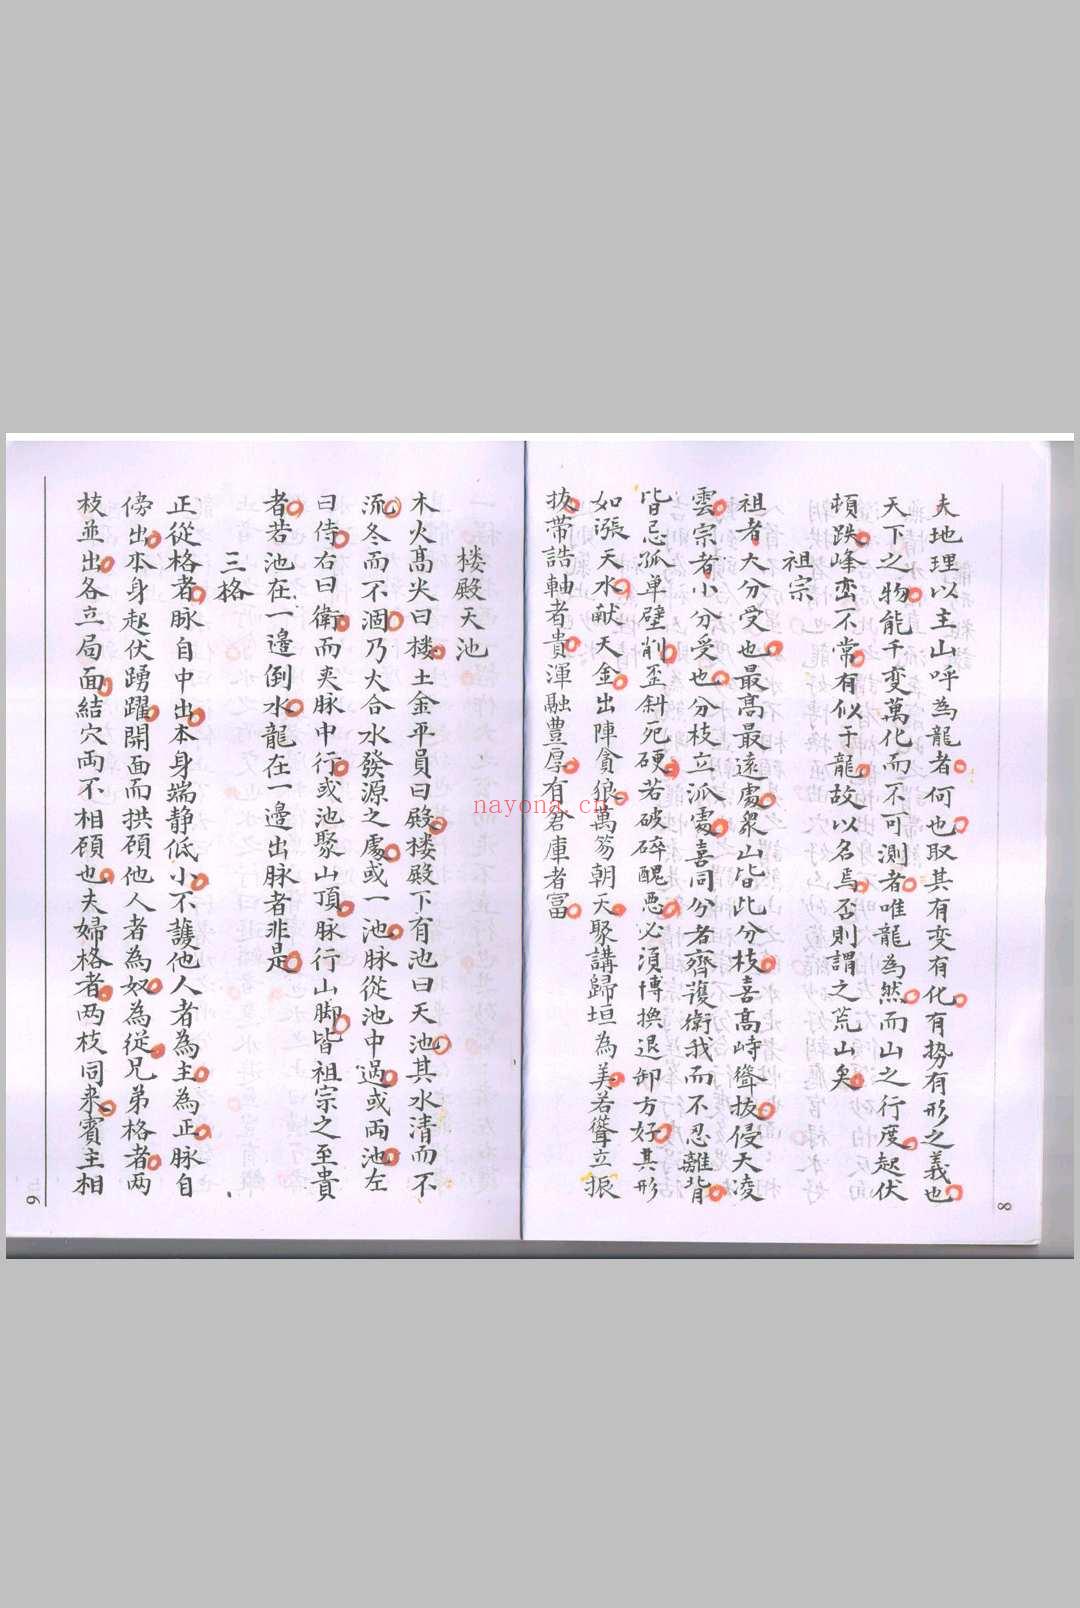 夫地理以主山呼為龍者何也取其有变有化有势有形之義也
天下之物能千变萬化而不可測者唯龍為然而山之行度起伏
頓跌峰峦不常有似于龍故以名焉否則謂之荒山矣
祖宗
祖者大分受也最高最遠處衆山皆此分枝喜高峙聳拔侵天凌
雲宗者小分受也分枝立派處喜同分者齊護衛我而不忍離背
皆忌孤单壁削歪斜死硬若破碎醜惡必湏博換退卸方好其形
如漲天水献天金出陣貪狼萬笏朝天聚講歸垣為美若聳立振
拔带誥軸者貴渾融豊厚有倉庫者富
8
楼殿天池
木火高尖曰楼土金平員曰殿楼殿下有池曰天池其水清而不
流冬而不涸乃大合水發源之處或一池脉從池中過或両池左
曰侍右曰衛而夹脉中行或池聚山頂脉行山脚皆祖宗之至貴
者若池在一邉倒水龍在一邉出脉者非是
三格
正從格者脉自中出本身端静低小不護他人者為主為正脉自
傍出本身起伏踴躍開面而拱顧他人者為奴為従兄弟格者两
枝並出各立局面結穴両不相顧也夫婦格者两枝同来賓主相
9
nayona.cn